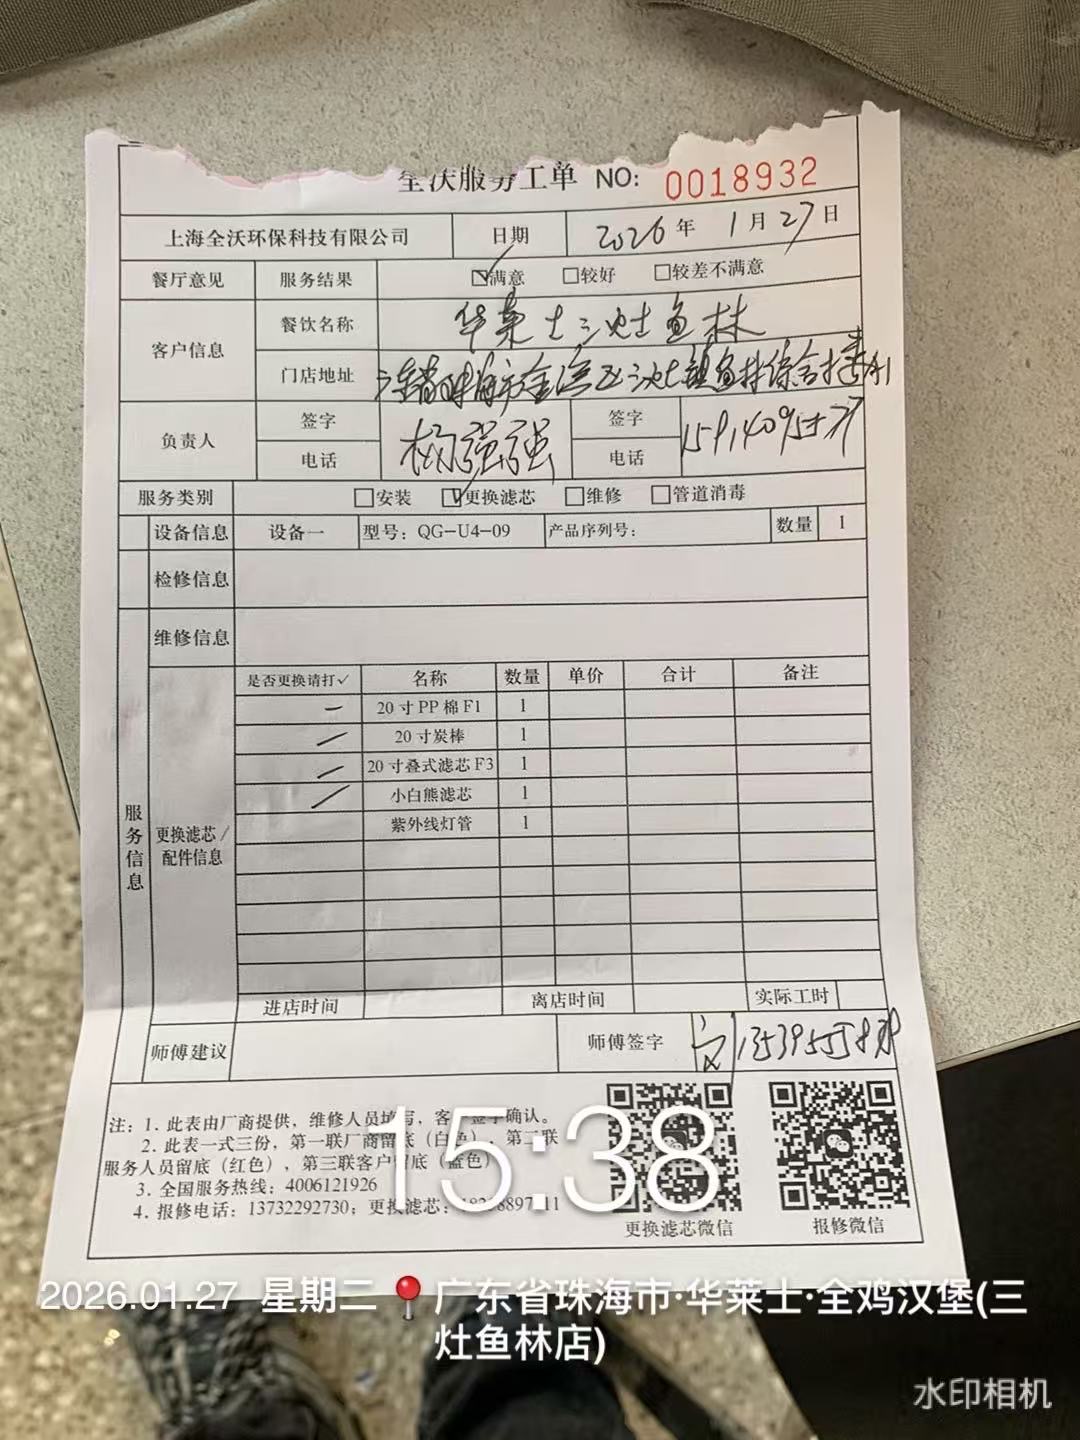 全沃服务工单 NO: 0018932
上海全沃环保科技有限公司 日期 2026年 1月27日
餐厅意见 服务结果 ☑满意 □较好 □较差不满意
客户信息 餐饮名称 华莱士三灶鱼林
门店地址 东省珠海市金湾区三灶镇鱼林综合楼
负责人 签字 杨强强 签字
电话 电话
服务类别 □安装 ☑更换滤芯 □维修 □管道消毒
设备信息 设备一 型号：QG-U4-09 产品序列号： 数量 1
检修信息
维修信息
服务信息
更换滤芯/配件信息
是否更换请打✓ 名称 数量 单价 合计 备注
— 20寸PP棉F1 1
— 20寸炭棒 1
— 20寸叠式滤芯F3 1
— 小白熊滤芯 1
紫外线灯管 1
进店时间 离店时间 实际工时
师傅建议 师傅签字
注：1. 此表由厂商提供，维修人员填写，客户签字确认。
2. 此表一式三份，第一联厂商留底（白色），第二联
服务人员留底（红色），第三联客户留底（蓝色）
3. 全国服务热线：4006121926
4. 报修电话：13732292730；更换滤芯：
更换滤芯微信 报修微信
15:38
2026.01.27 星期二 广东省珠海市·华莱士·全鸡汉堡(三
灶鱼林店)
水印相机